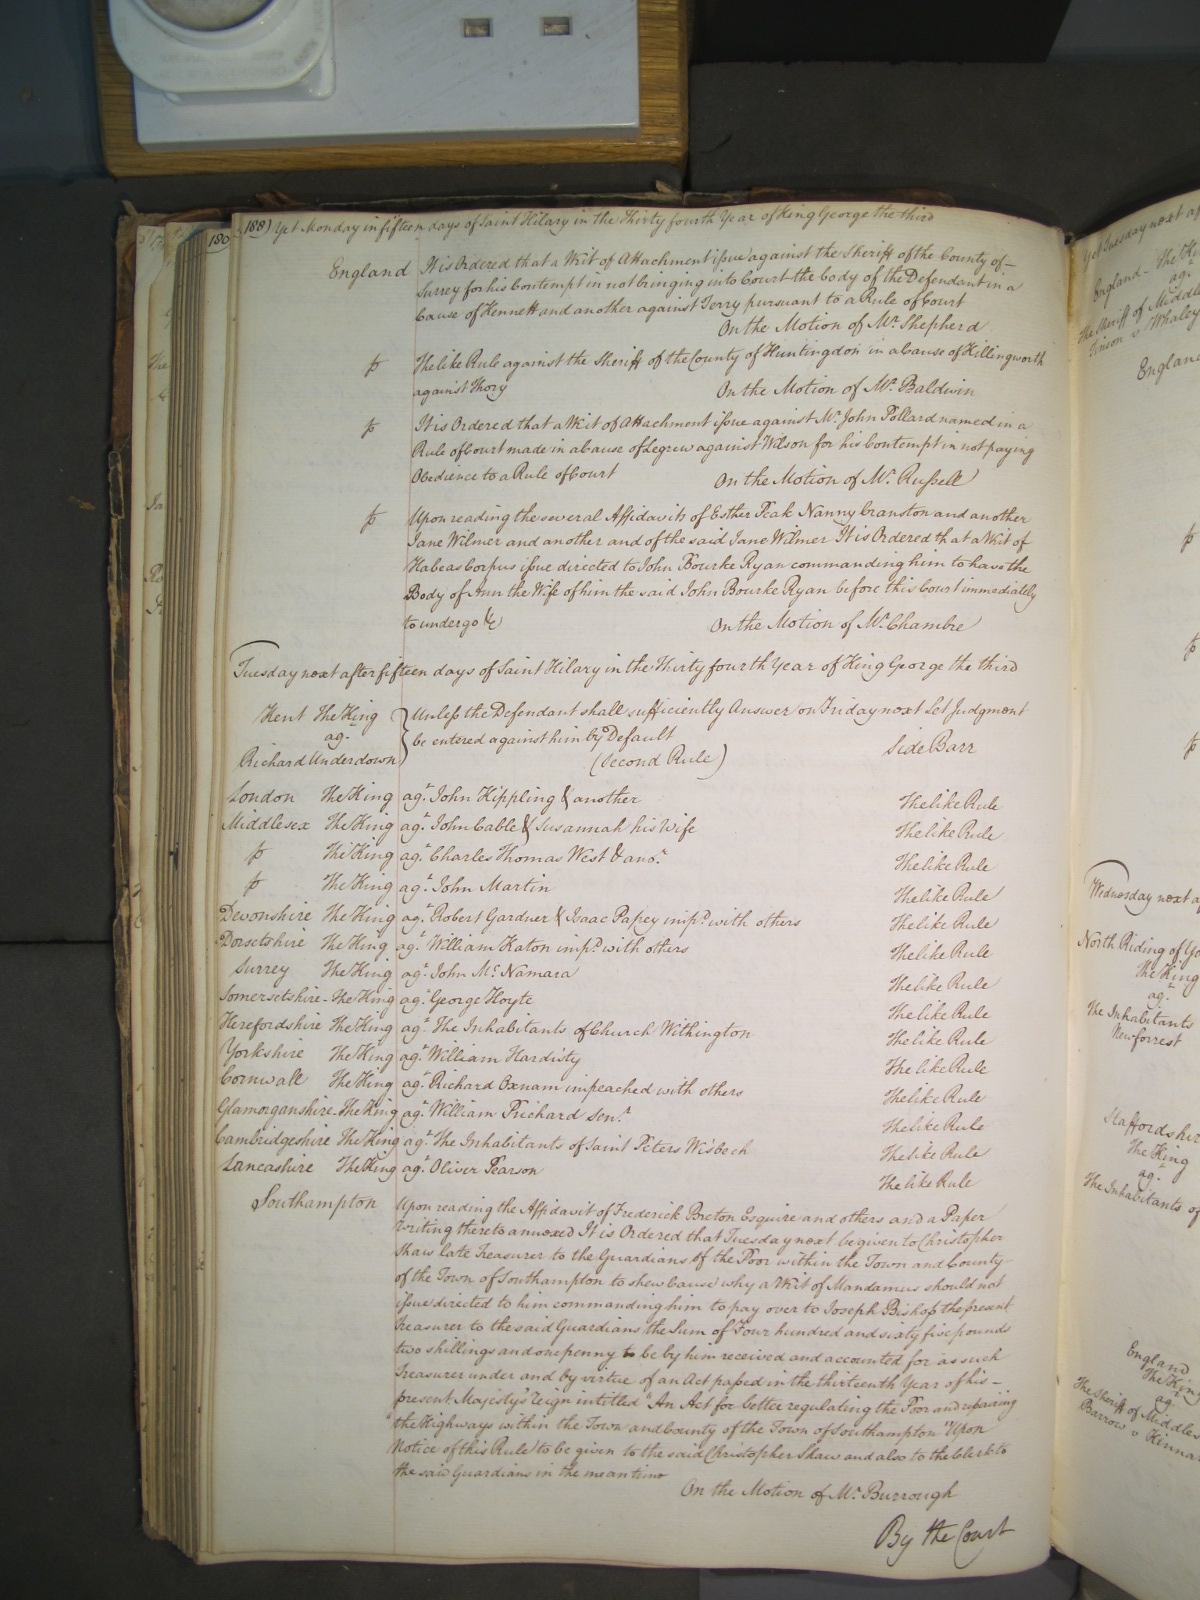 188) Yet Monday in fifteen days of Saint Hilary in the Thirty fourth Year of King George the third
England It is Ordered that a Writ of Attachment issue against the Sheriff of the County of
Surrey for his Contempt in not bringing into Court the body of the Defendant in a
Cause of Kennett and another against Terry pursuant to a Rule of Court
On the Motion of Mr. Shepherd
The like Rule against the Sheriff of the County of Huntingdon in a Cause of Killingworth
against Thory
On the Motion of Mr. Baldwin
It is Ordered that a Writ of Attachment issue against Mr. John Pollard named in a
Rule of Court made in a Cause of Legrew against Wilson for his Contempt in not paying
Obedience to a Rule of Court
On the Motion of Mr. Russell
Upon reading the several Affidavits of Esther Peak Nanny Cranston and another
Jane Wilmer and another and of the said Jane Wilmer It is Ordered that a Writ of
Habeas Corpus issue directed to John Bourke Ryan commanding him to have the
Body of Ann the Wife of him the said John Bourke Ryan before this Court immediately
to undergo &c
On the Motion of Mr. Chambre
Tuesday next after fifteen days of Saint Hilary in the Thirty fourth Year of King George the third
Kent The King
agt.
Richard Underdown
Unless the Defendant shall sufficiently Answer on Friday next Let Judgment
be entered against him by Default
(Second Rule)
Side Barr
London The King agt. John Kippling & another The like Rule
Middlesex The King agt. John Cable & Susannah his Wife The like Rule
The King agt. Charles Thomas West & anor. The like Rule
The King agt. John Martin The like Rule
Devonshire The King agt. Robert Gardner & Isaac Papey impd. with others The like Rule
Dorsetshire The King agt. William Katon impd. with others The like Rule
Surrey The King agt. John Mc. Namara The like Rule
Somersetshire - The King agt. George Hoyte The like Rule
Herefordshire The King agt. The Inhabitants of Church Withington The like Rule
Yorkshire The King agt. William Hardisty The like Rule
Cornwall The King agt. Richard Oxnam impeached with others The like Rule
Glamorganshire The King agt. William Prichard Senr. The like Rule
Cambridgeshire The King agt. The Inhabitants of Saint Peters Wisbech The like Rule
Lancashire The King agt. Oliver Pearson The like Rule
Southampton Upon reading the Affidavit of Frederick Breton Esquire and others and a Paper
Writing thereto annexed It is Ordered that Tuesday next be given to Christopher
Shaw late Treasurer to the Guardians of the Poor within the Town and County
of the Town of Southampton to shew Cause why a Writ of Mandamus should not
issue directed to him commanding him to pay over to Joseph Bishop the present
Treasurer to the said Guardians the Sum of Four hundred and sixty five pounds
two shillings and one penny to be by him received and accounted for as such
Treasurer under and by virtue of an Act passed in the thirteenth Year of his
present Majesty's Reign intitled "An Act for better regulating the Poor and repairing
"the Highways within the Town and County of the Town of Southampton" Upon
Notice of this Rule to be given to the said Christopher Shaw and also to the Clerk to
the said Guardians in the mean time
On the Motion of Mr. Burrough
By the Court
Yet Tuesday next
England - The
agt.
The Sheriff of
v Whaley
England
Wednesday next
North Riding of
The King
agt.
The Inhabitants
Newforrest
The King
agt.
The Inhabitants of
England
The
agt.
The Sheriff of
Barrow v